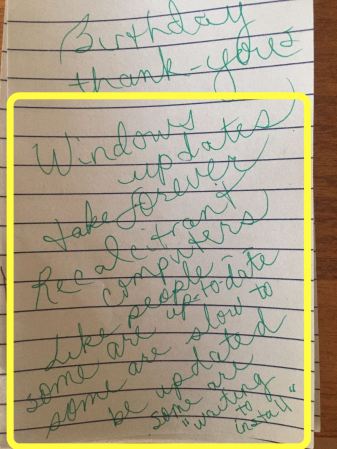 Birthday
thank-yous
Windows
updates
take forever
Recalcitrant
computers
Like people –
some are up-to-date
some are slow to
be updated
some are
"waiting
to
install"